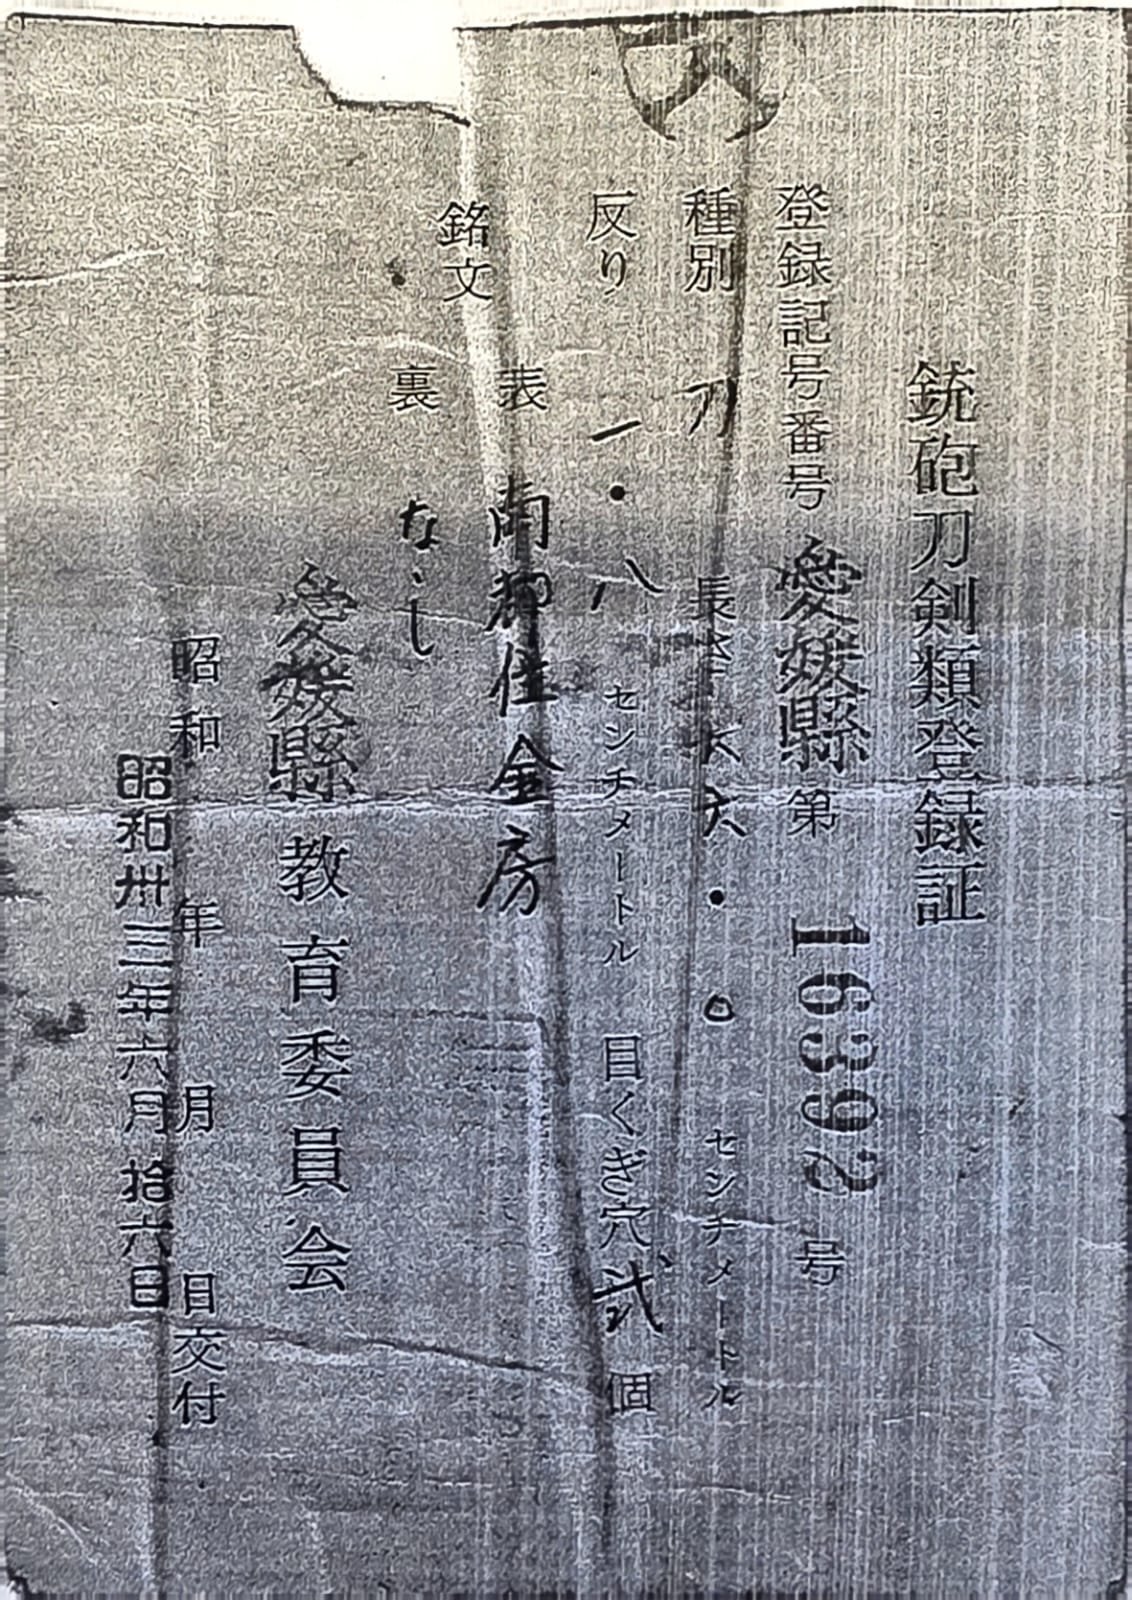 銃砲刀剣類登録証
登録記号番号 愛媛縣 第 16392 号
種別 刀 長さ 六六・〇 センチメートル
反り 一・八 センチメートル 目くぎ穴 弐 個
銘文
表 南都住金房
裏 なし
愛媛縣 教育委員会
昭和 年 月 日交付
昭和卅三年六月拾六日